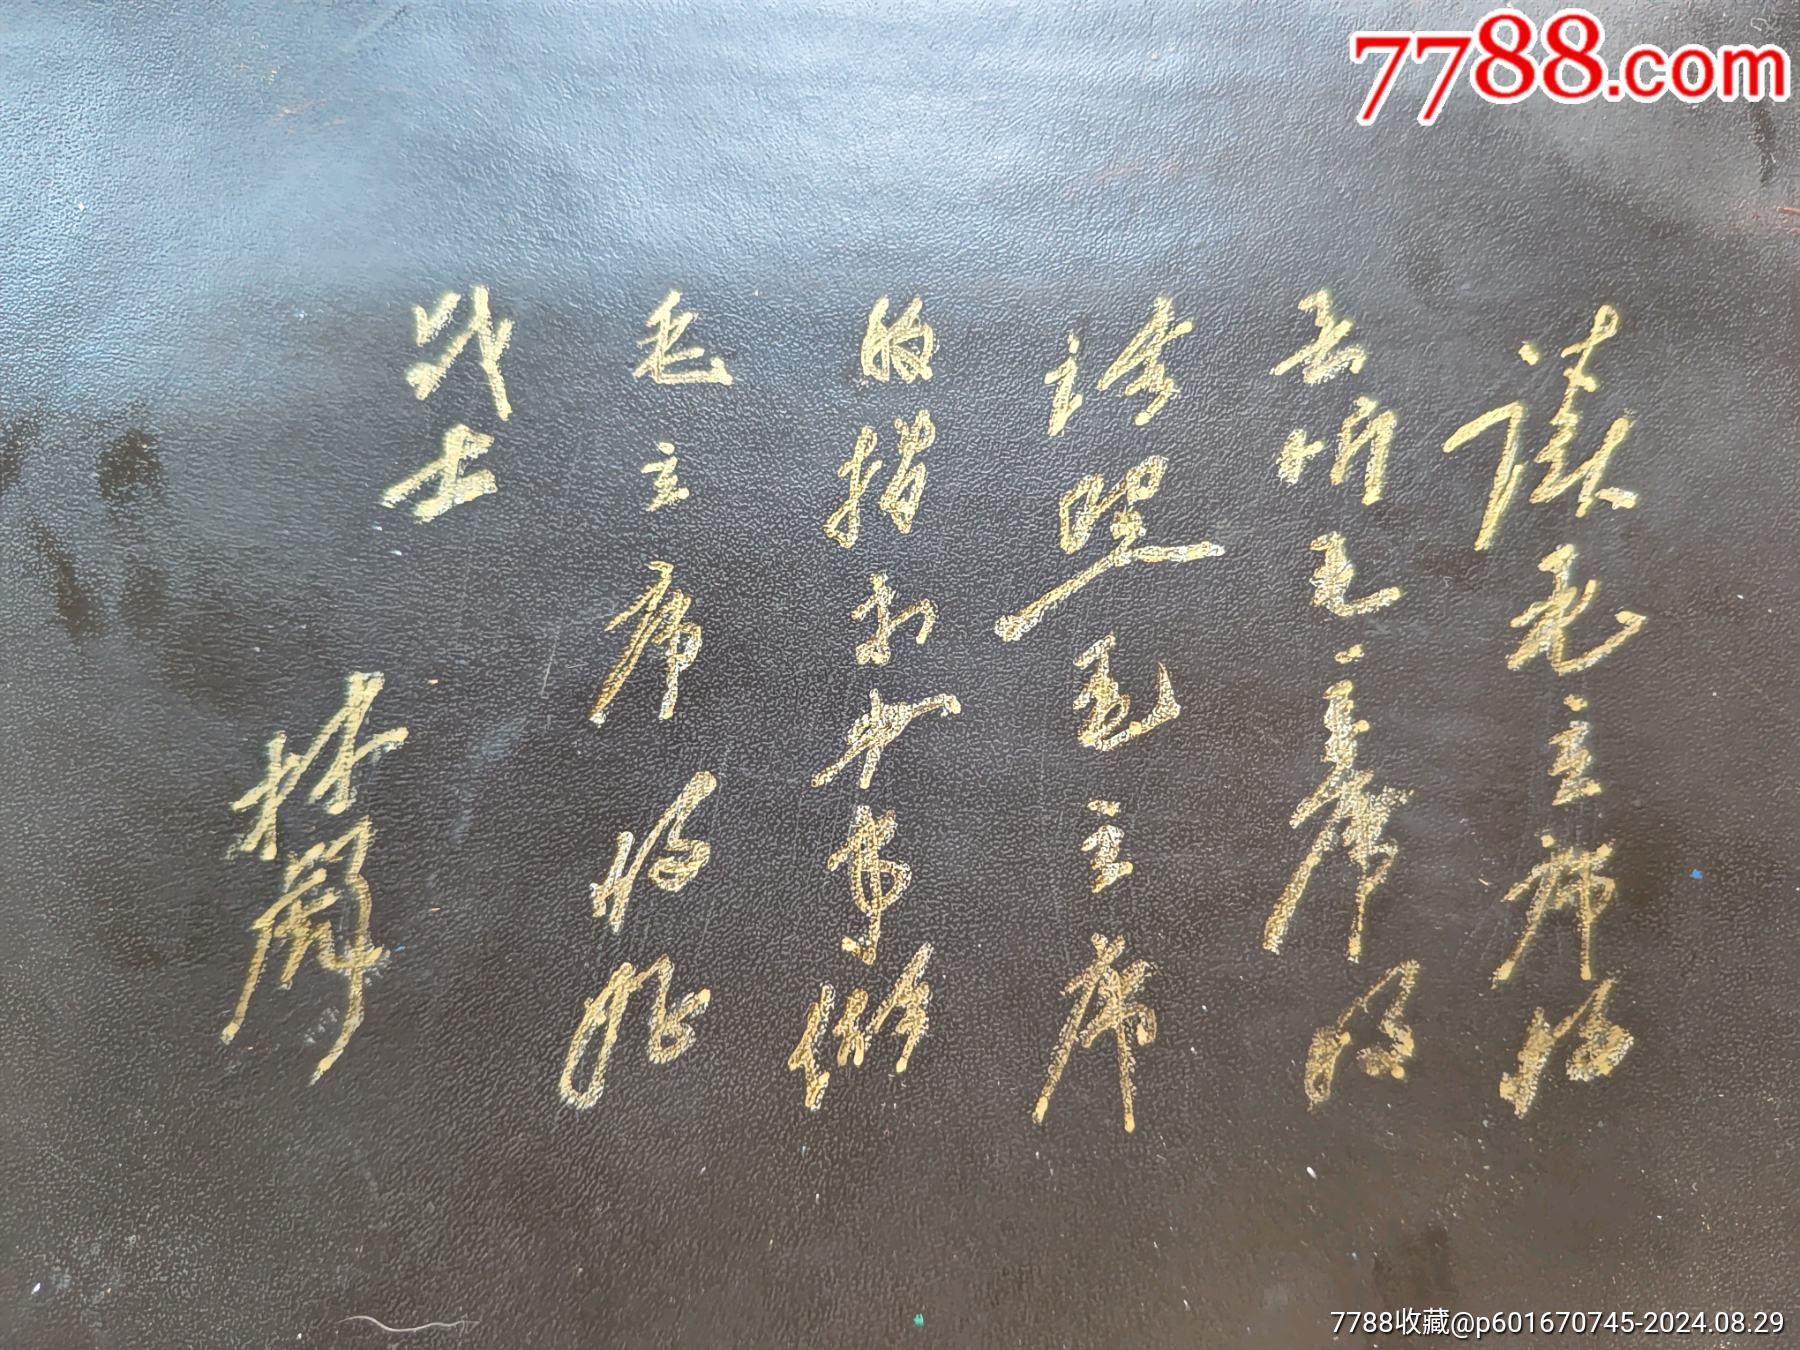 7788.com
读毛主席的
书听毛主席的
话照毛主席
的指示办事做
毛主席的好
战士
林彪
7788收藏@p601670745-2024.08.29